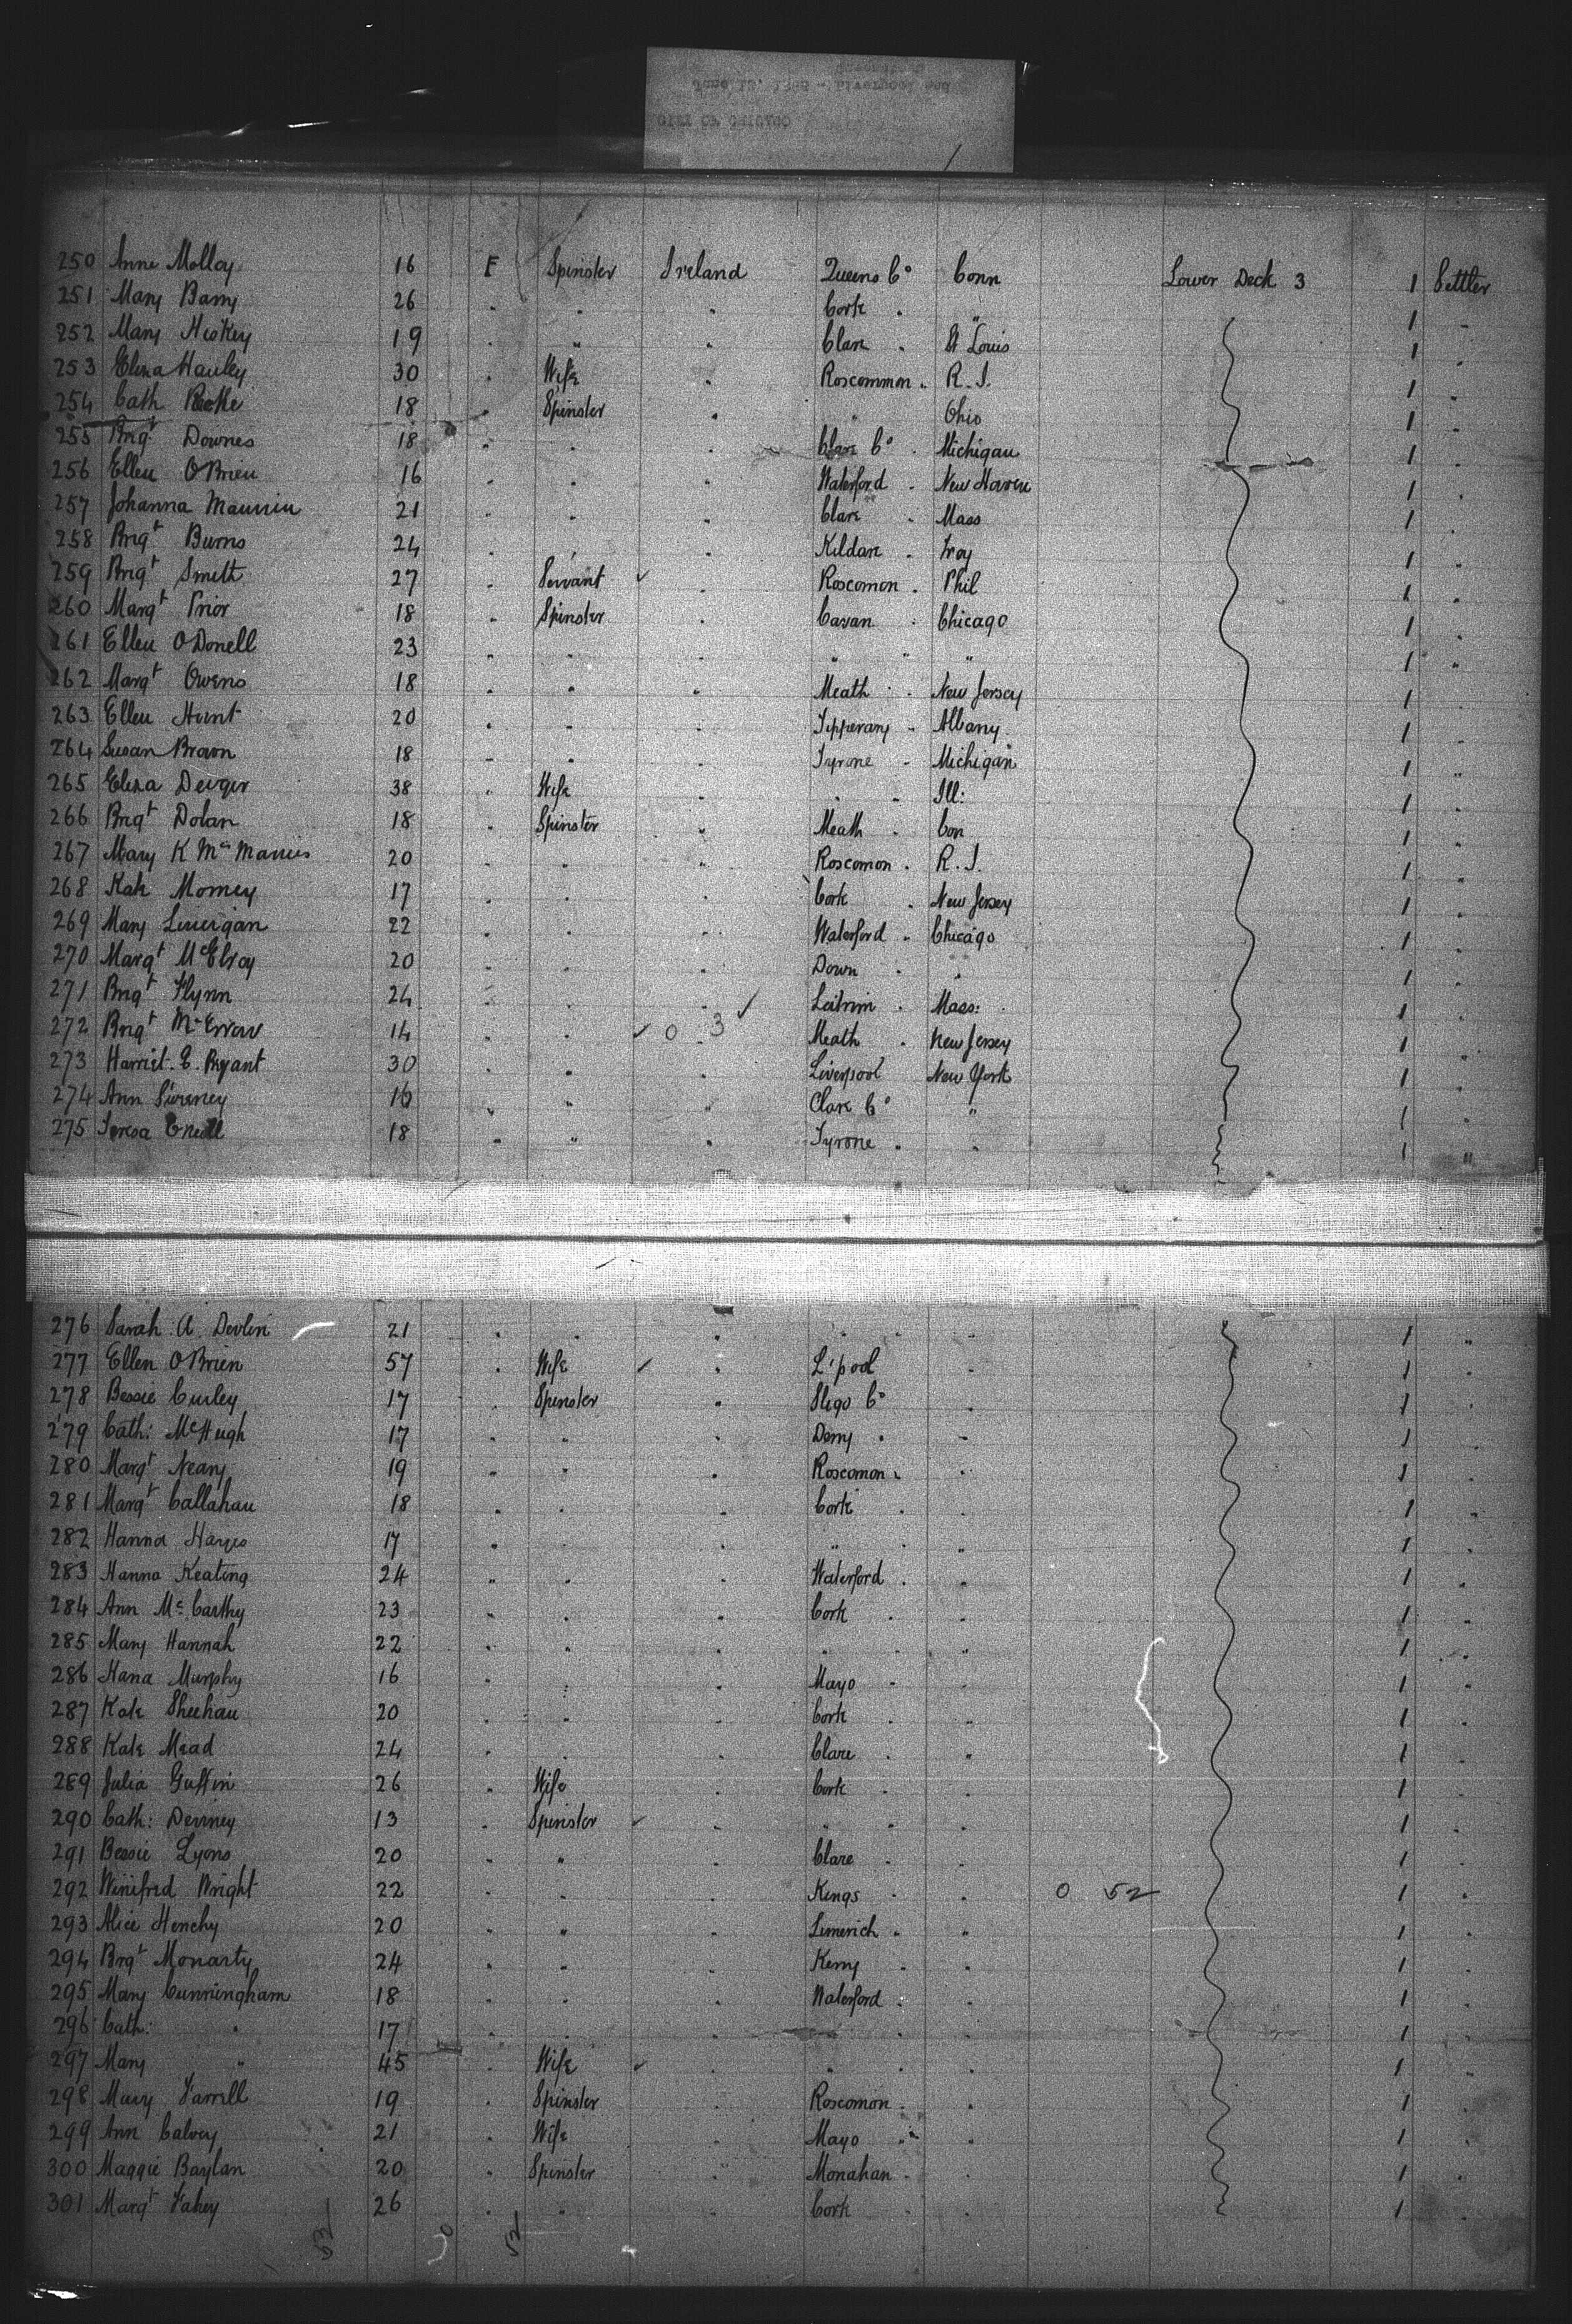 250 Anne Molloy 16 F Spinster Ireland Queens Co Conn Lower Deck 3 1 Settler
251 Mary Barry 26 " " " Cork " " 1 "
252 Mary Hickey 19 " " " Clare " St Louis 1 "
253 Eliza Hauley 30 " Wife " Roscommon " R.I. 1 "
254 Cath 18 " Spinster " " Ohio 1 "
255 Brigt Downes 18 " " " Clare Co " Michigan 1 "
256 Ellen O'Brien 16 " " " Waterford " New Haven 1 "
257 Johanna 21 " " " Clare " Mass 1 "
258 Brigt Burns 24 " " " Kildare " Troy 1 "
259 Brigt Smith 27 " Servant " Roscomon " Phil 1 "
260 Margt Prior 18 " Spinster " Cavan " Chicago 1 "
261 Ellen O'Donell 23 " " " " " " 1 "
262 Margt Owens 18 " " " Meath " New Jersey 1 "
263 Ellen Hunt 20 " " " Tipperary " Albany 1 "
264 Susan Brown 18 " " " Tyrone " Michigan 1 "
265 Eliza 38 " Wife " " " Ill: 1 "
266 Brigt Dolan 18 " Spinster " Meath " Con 1 "
267 Mary K McManus 20 " " " Roscomon " R.I. 1 "
268 Kate 17 " " " Cork " New Jersey 1 "
269 Mary 22 " " " Waterford " Chicago 1 "
270 Margt McElroy 20 " " " Down " " 1 "
271 Brigt Flynn 24 " " " Leitrim " Mass: 1 "
272 Brigt 14 " " 0 3 Meath " New Jersey 1 "
273 Harriet E. Bryant 30 " " " Liverpool New York 1 "
274 Ann Sweeney 16 " " " Clare Co " 1 "
275 Teresa 18 " " " Tyrone " " 1 "
276 Sarah A. Devlin 21 " " " " " " 1 "
277 Ellen O'Brien 57 " Wife " L'pool " 1 "
278 Bessie Curley 17 " Spinster " Sligo Co " 1 "
279 Cath: McHugh 17 " " " Derry " " 1 "
280 Margt Neary 19 " " " Roscomon " " 1 "
281 Margt Callahan 18 " " " Cork " " 1 "
282 Hanna Hayes 17 " " " " " " 1 "
283 Hanna Keating 24 " " " Waterford " " 1 "
284 Ann McCarthy 23 " " " Cork " " 1 "
285 Mary Hannah 22 " " " " " " 1 "
286 Hana Murphy 16 " " " Mayo " " 1 "
287 Kate Sheehan 20 " " " Cork " " 1 "
288 Kate Mead 24 " " " Clare " " 1 "
289 Julia 26 " Wife " Cork " " 1 "
290 Cath: 13 " Spinster " " " " 1 "
291 Bessie Lyons 20 " " " Clare " " 1 "
292 Winifred Wright 22 " " " Kings " " 0 52 1 "
293 Alice Henchy 20 " " " Limerich " " 1 "
294 Brgt Moriarty 24 " " " Kerry " " 1 "
295 Mary Cunningham 18 " " " Waterford " " 1 "
296 Cath: " 17 " " " " " " 1 "
297 Mary " 45 " Wife " " " " 1 "
298 Mary Farrell 19 " Spinster " Roscomon " " 1 "
299 Ann Calvey 21 " Wife " Mayo " " 1 "
300 Maggie Baylan 20 " Spinster " Monahan " " 1 "
301 Margt Fahey 26 " " " Cork " " 1 "